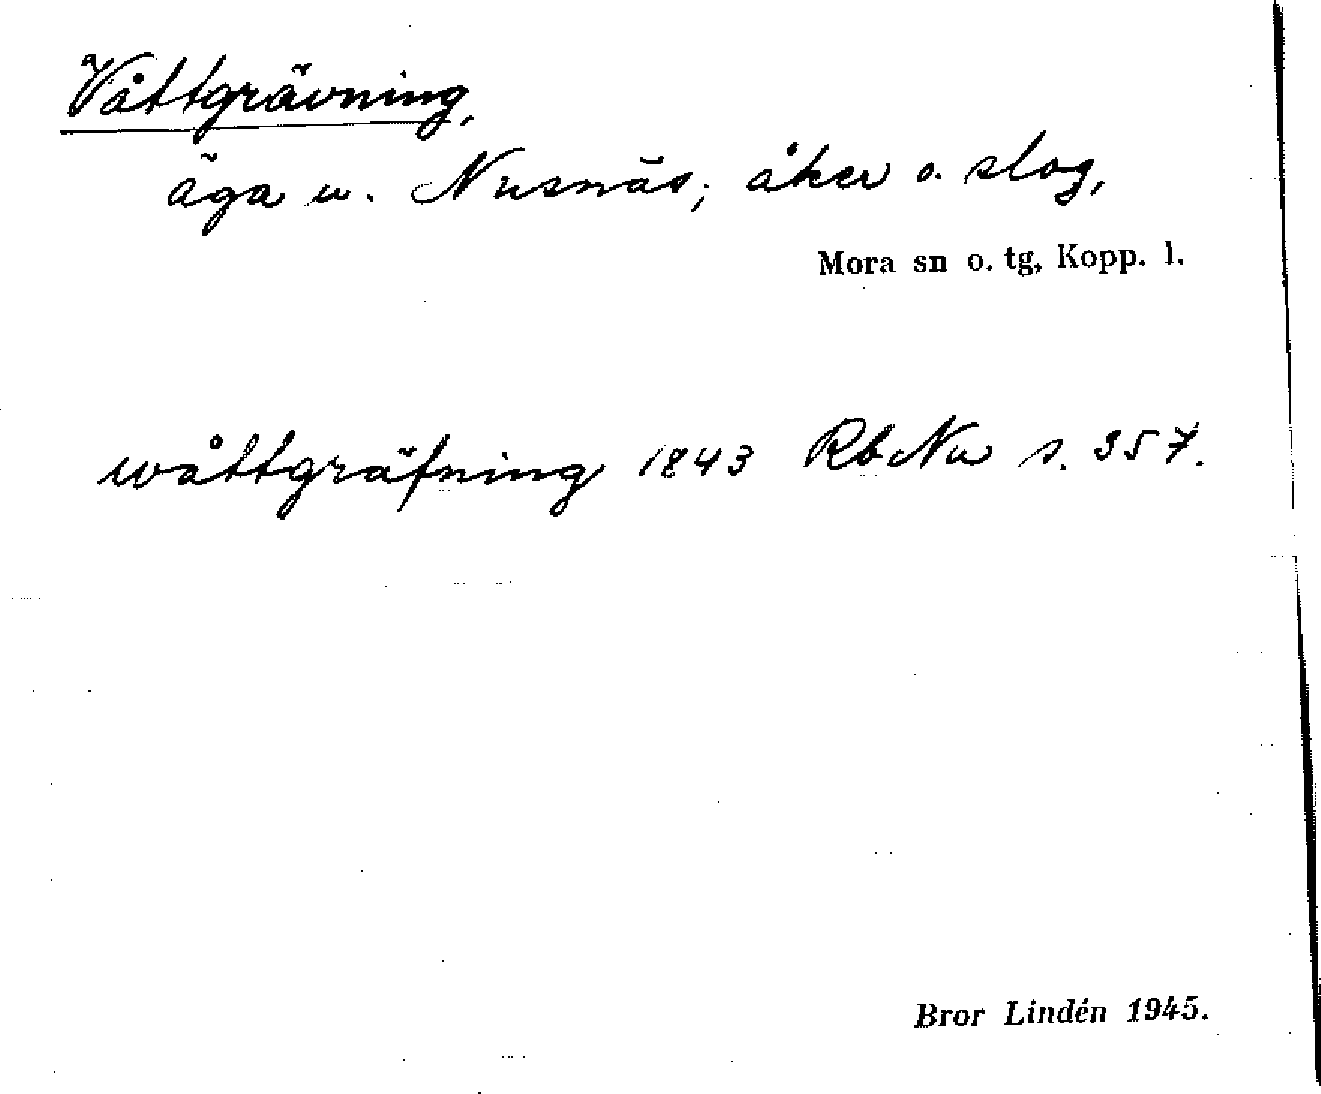 Våttgrävning,
äga u. Nusnäs; åker o. slog,
Mora sn o. tg, Kopp. l.
wåttgräfning 1843 RbNu s. 357.
Bror Lindén 1945.